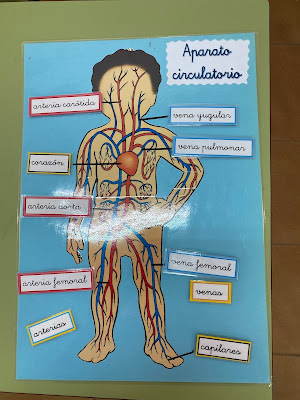 Aparato
circulatorio
arteria carótida
vena yugular
vena pulmonar
corazón
arteria aorta
vena femoral
arteria femoral
venas
arterias
capilares